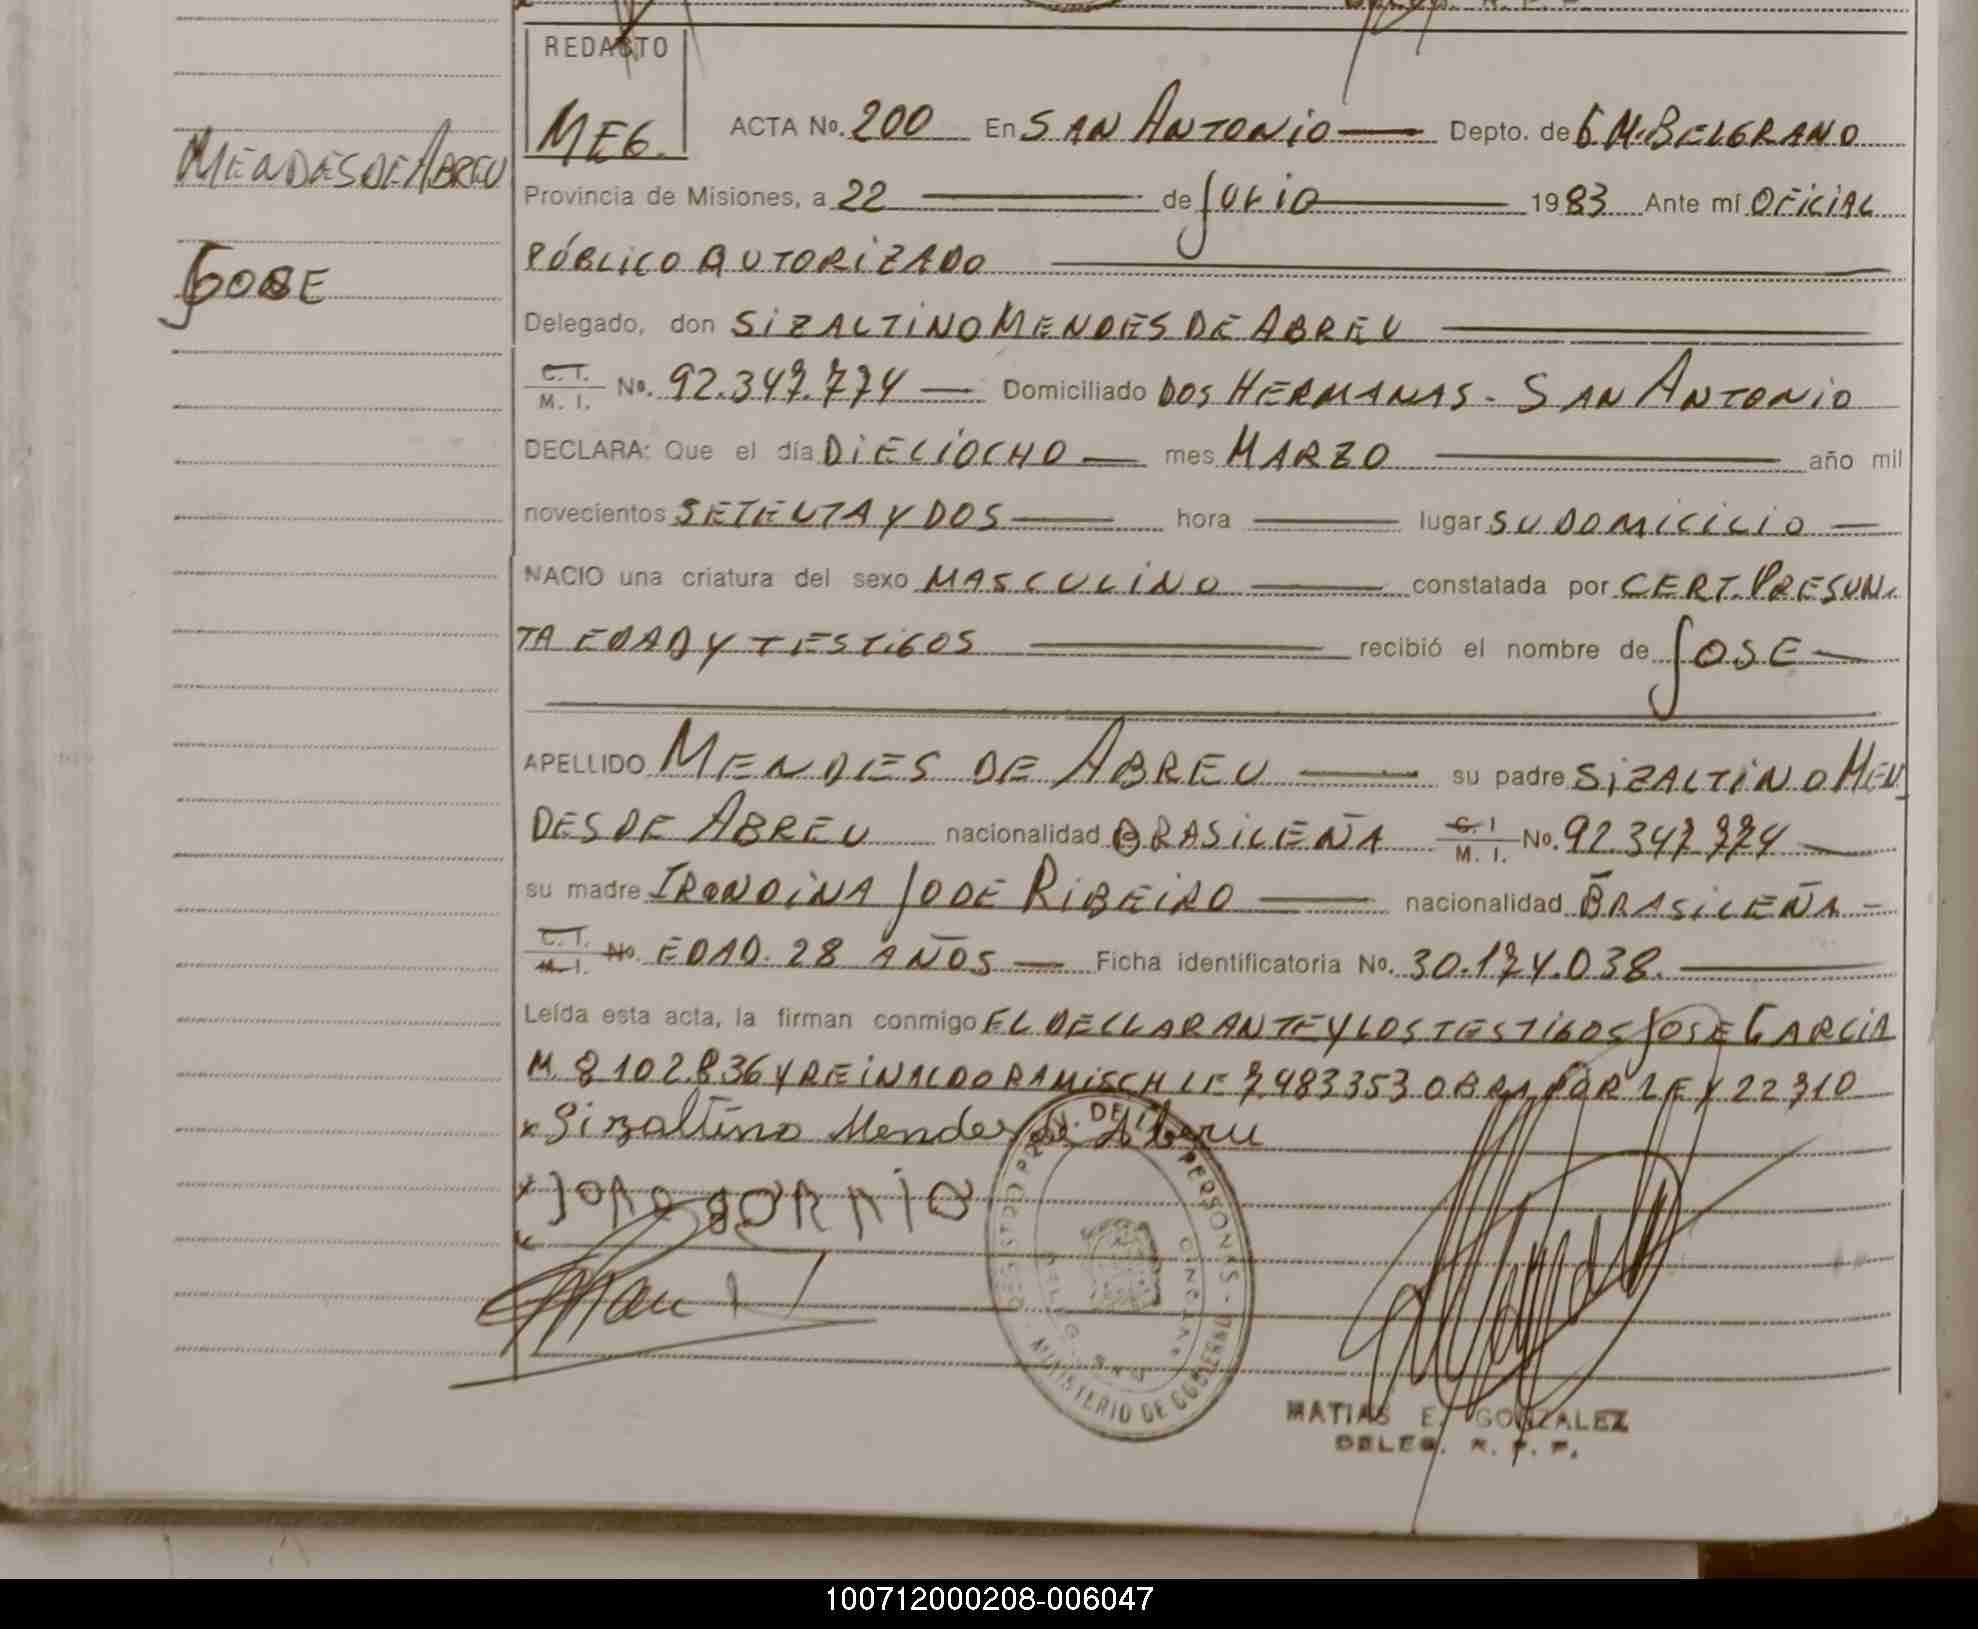 REDACTO
MEG.
MENDES DE ABREU
JOSE
ACTA No. 200 En SAN ANTONIO Depto. de G. M. BELGRANO
Provincia de Misiones, a 22 de JULIO 1983 Ante mí OFICIAL
PÚBLICO AUTORIZADO
Delegado, don SIZALTINO MENDES DE ABREU
C. I. M. I. No. 92.347.774 Domiciliado DOS HERMANAS - SAN ANTONIO
DECLARA: Que el día DIECIOCHO mes MARZO año mil
novecientos SETENTA Y DOS hora lugar SU DOMICILIO
NACIO una criatura del sexo MASCULINO constatada por CERT. PRESUN-
TA EDAD Y TESTIGOS recibió el nombre de JOSE
APELLIDO MENDES DE ABREU su padre SIZALTINO MEN
DES DE ABREU nacionalidad BRASILEÑA C. I M. I. No. 92.347.774
su madre IRONDINA JO DE RIBEIRO nacionalidad BRASILEÑA
C. I. M. I. No. EDAD. 28 AÑOS Ficha identificatoria No. 30.174.038.
Leída esta acta, la firman conmigo EL DECLARANTE Y LOS TESTIGOS JOSE GARCIA
M. 8102836 Y REINALDO RAMISCH LE 7483353 OBRA POR LEY 22310
x Sizaltino Mendes de Abreu
x
x
MINISTERIO DE GOBIERNO
PERSONAS
MATIAS E. GONZALEZ
DELEG. R. P. P.
100712000208-006047